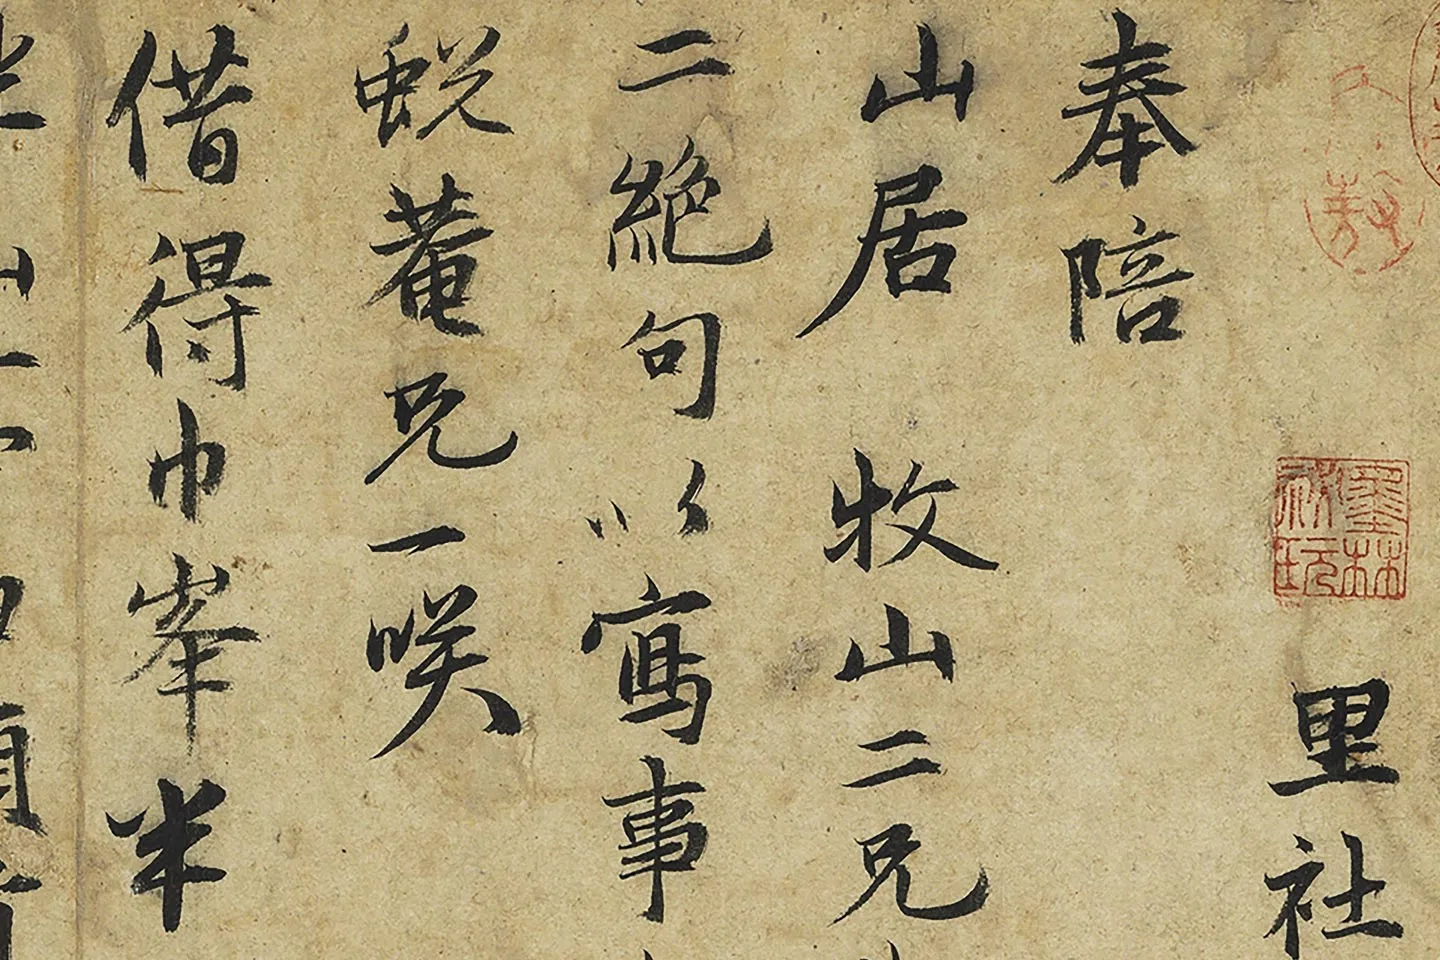 里社
奉陪
山居 牧山二兄
二絶句以寫事
蜕菴兄一咲
借得巾峯半
墨林秘玩